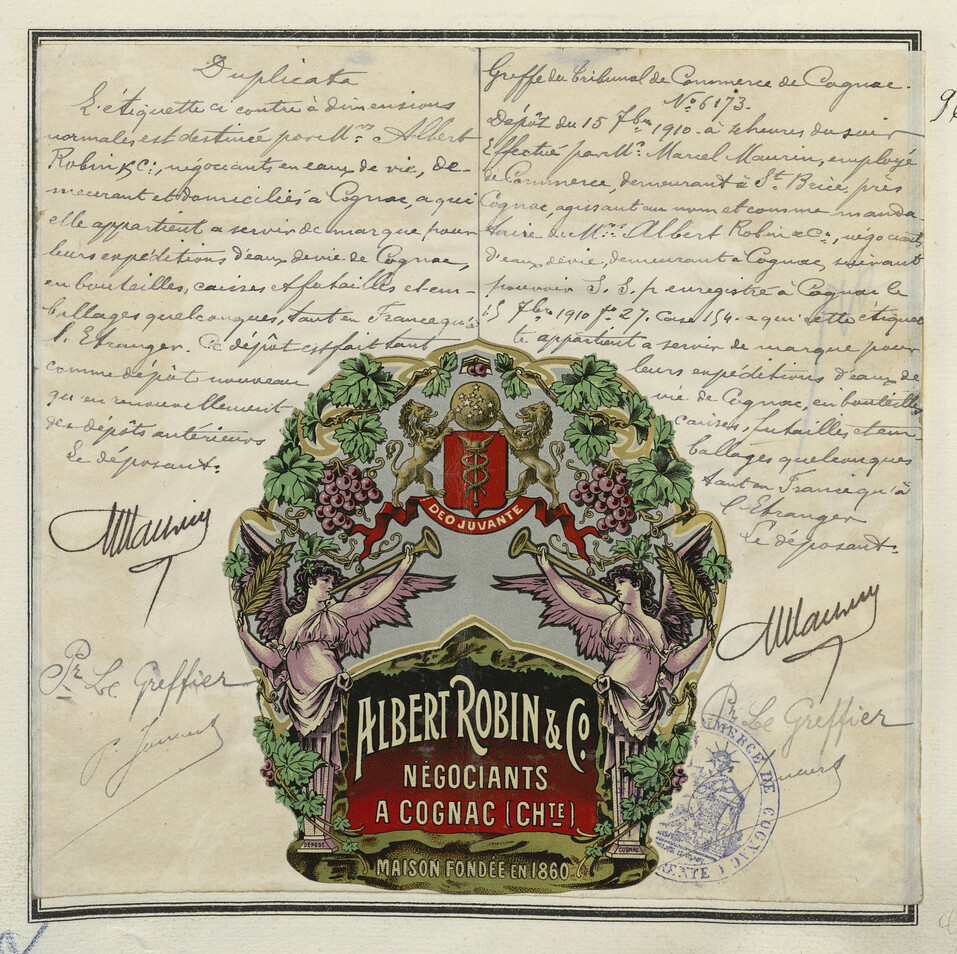 Duplicata
L'étiquette ci contre à dimensions
normales est destinée par Mrs Albert
Robin & Cie, négociants en eaux de vie, de-
meurant et domiciliés à Cognac, a qui
elle appartient a servir de marque pour
leurs expéditions d'eaux de vie de Cognac,
en bouteilles, caisses et futailles et em-
ballages quelconques, tant en France qu'à
l'Etranger. Ce dépôt est fait tant
comme dépôt nouveau
qu'en renouvellement
des dépôts antérieurs
Le déposant.
MMaurin
Pr Le Greffier
Greffe du Tribunal de Commerce de Cognac.
No 6173.
Dépôt du 15 7bre 1910 à heures du soir
Effectué par Mr Marcel Maurin, employé
de Commerce, demeurant à St Brice, près
Cognac, agissant au nom et comme manda
taire de Mrs Albert Robin & Co, négociants
d'eaux de vie, demeurant à Cognac, suivant
pouvoir S. S. p. enregistré à Cognac le
15 7bre 1910 fo 27. Case 154. a qui cette étiquet
te appartient a servir de marque pour
leurs expéditions d'eaux de
vie de Cognac, en bouteilles
caisses, futailles et em-
ballages quelconques
tant en France qu'à
l'Etranger
Le déposant.
MMaurin
Pr Le Greffier
DEO JUVANTE
ALBERT ROBIN & Co.
NÉGOCIANTS
A COGNAC (CHTE)
DÉPOSÉ
COGNAC
MAISON FONDÉE EN 1860
MMERCE DE COGNAC
ENTE